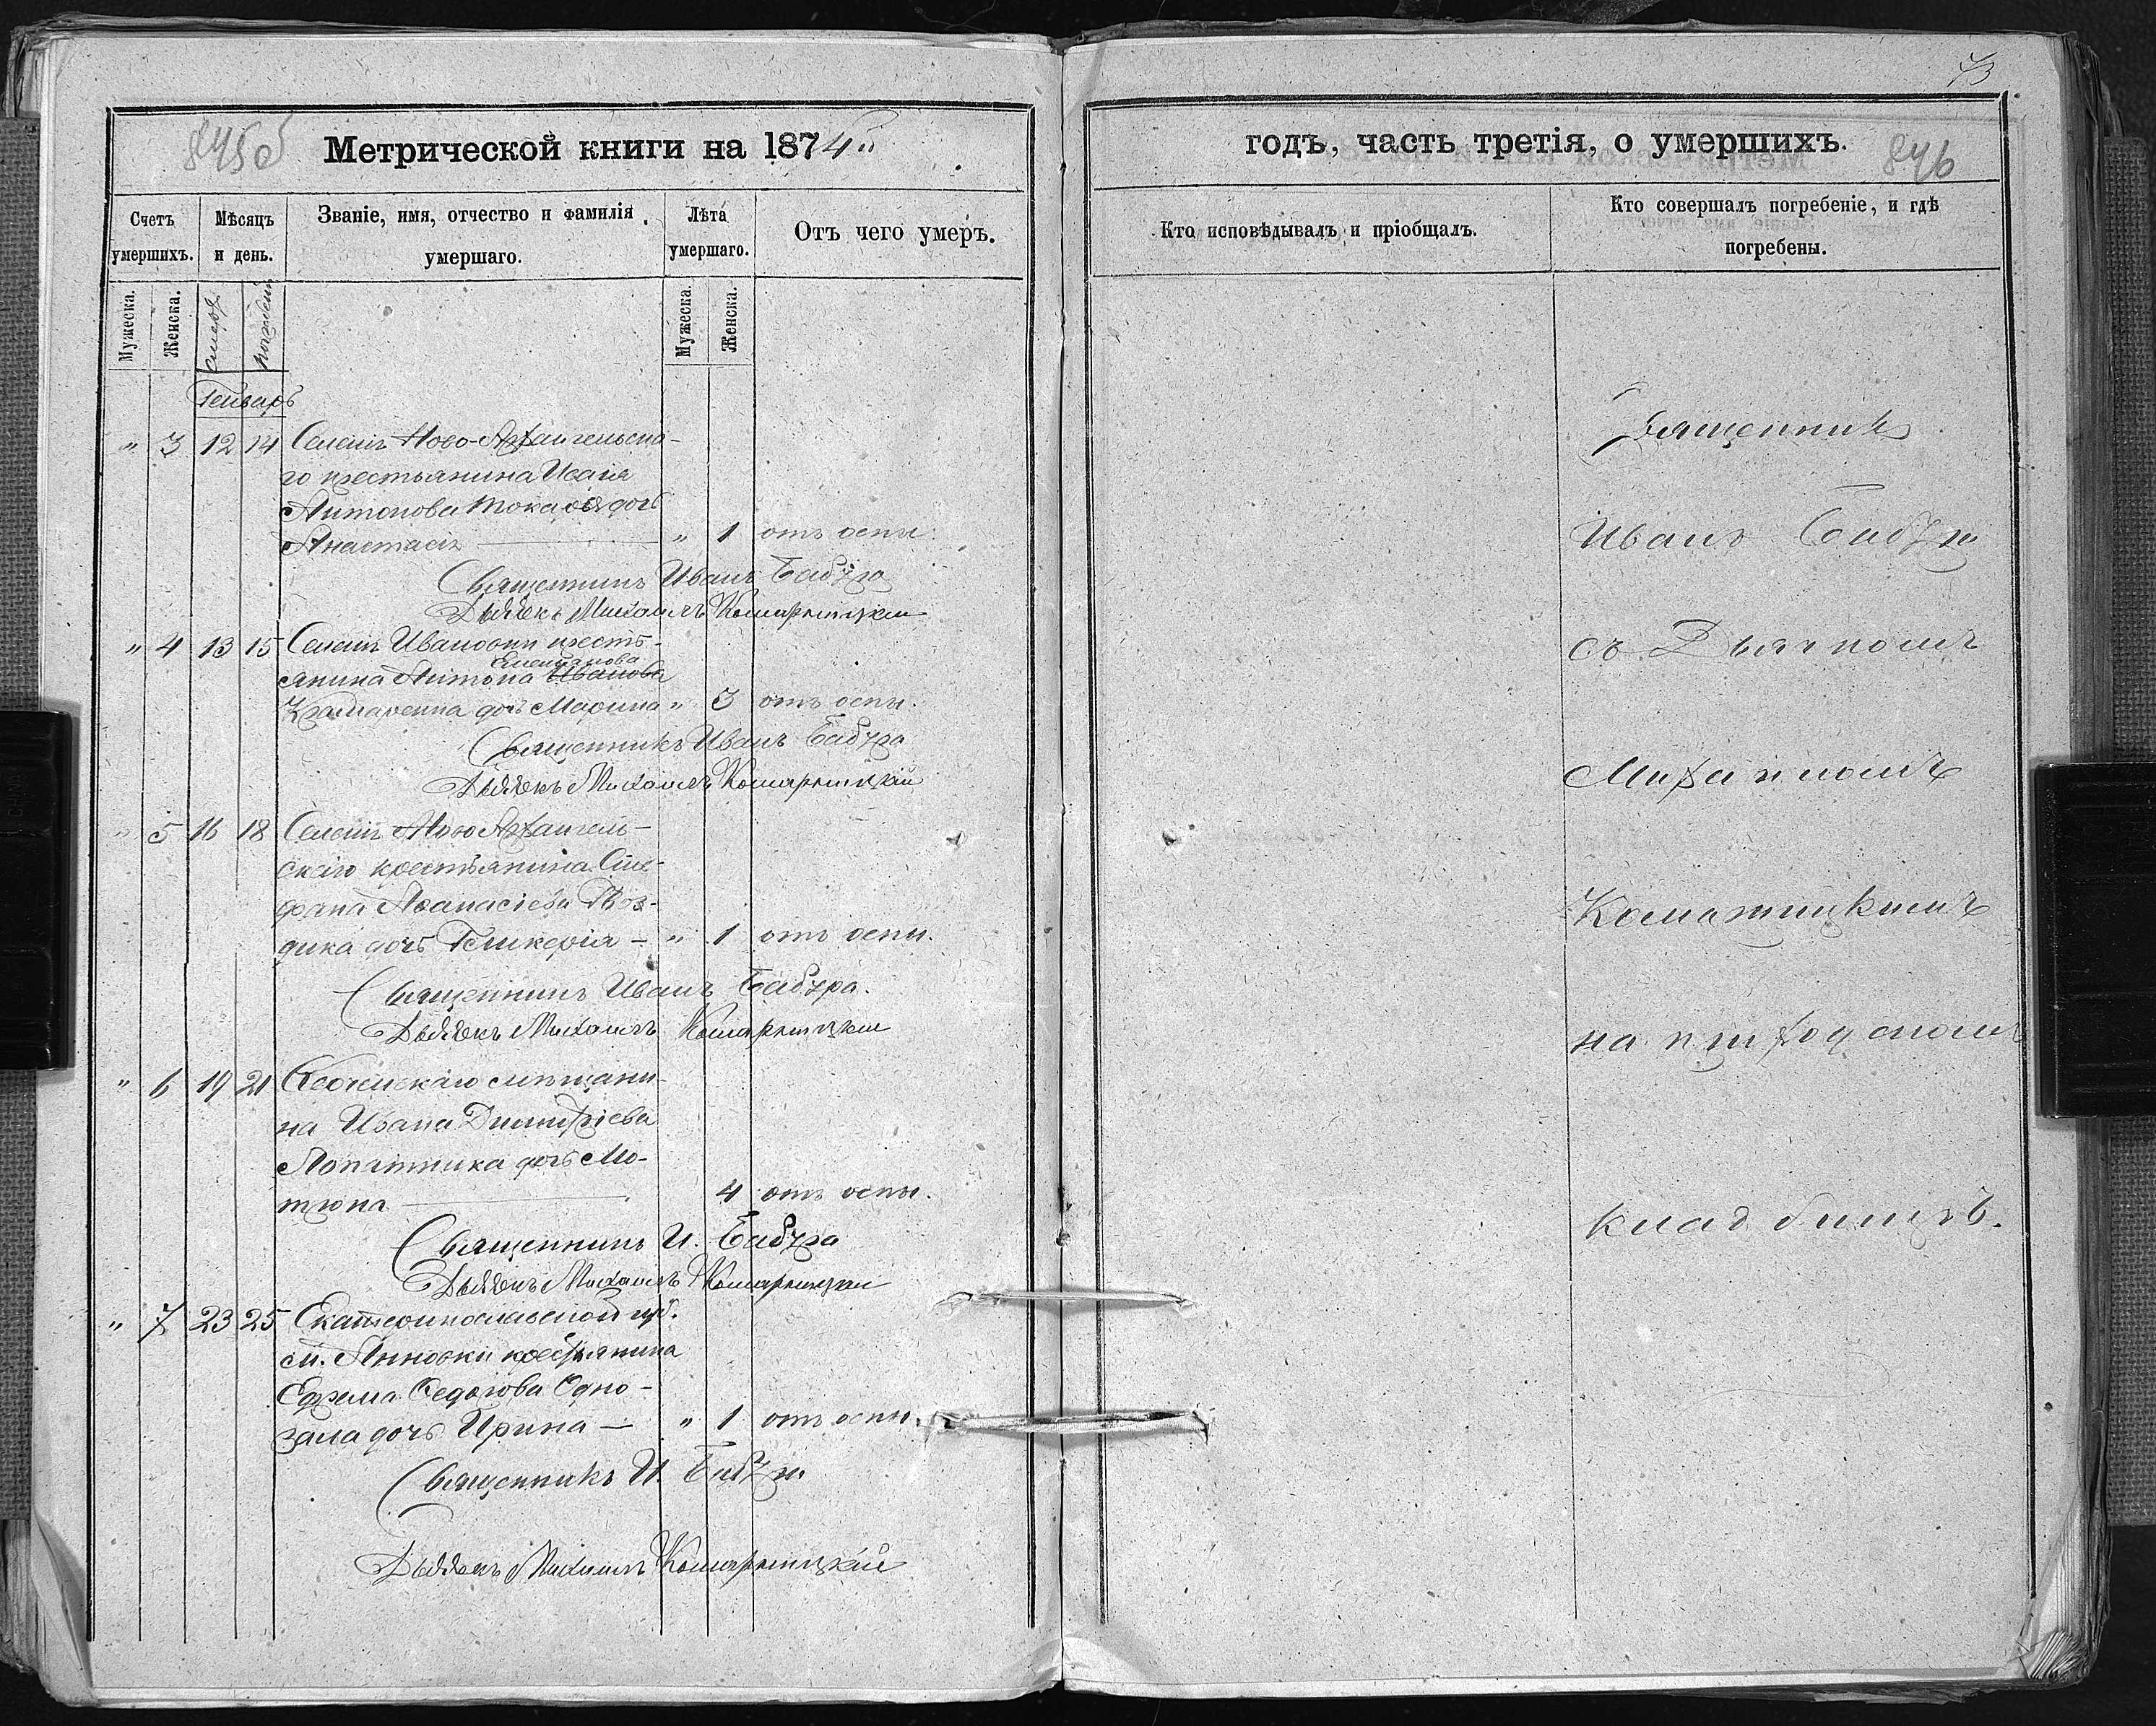 845об
Метрической книги на 1874й
Счетъ умершихъ.
Мѣсяцъ и день.
Званіе, имя, отчество и фамилія умершаго.
Лѣта умершаго.
Отъ чего умеръ.
Мужеска.
Женска.
смерт.
погребен.
Мужеска.
Женска.
Генварь
" 3 12 14 Селенія Ново-Архангельска-
го крестьянина Исаія
Антонова дочь
Анастасія " 1 отъ оспы
Священникъ Иванъ Бабура
Дьячекъ Михаилъ Комарницкій
" 4 13 15 Селенія Ивановки кресть-
янина Антона Иванова
Крамаренка дочь Марина " 3 отъ оспы.
Священникъ Иванъ Бабура
Дьячекъ Михаилъ Комарницкій
" 5 16 18 Селенія Ново Архангель-
скаго крестьянина Сте-
фана Аѳанасіева Гвоз-
дика дочь Гликерія " 1 отъ оспы.
Священникъ Иванъ Бабура.
Дьячекъ Михаилъ Комарницкій
" 6 19 21 мѣщани-
на Ивана Димитріева
Лопатника дочь Мо-
трона 4 отъ оспы.
Священникъ И. Бабура
Дьячекъ Михаилъ Комарницкій
" 7 23 25 Екатеринославской губ.
Анновки крестьянина
Ефрема Ѳедорова Одно-
зала дочь Ирина " 1 отъ оспы.
Священникъ И. Бабура
Дьячекъ Михаилъ Комарницкій
73
годъ, часть третія, о умершихъ.
846
Кто исповѣдывалъ и пріобщалъ.
Кто совершалъ погребеніе, и гдѣ погребены.
Священникъ
Иванъ Бабура
съ Дьячкомъ
Михаиломъ
Комарницкимъ
на приходскомъ
кладбищѣ.